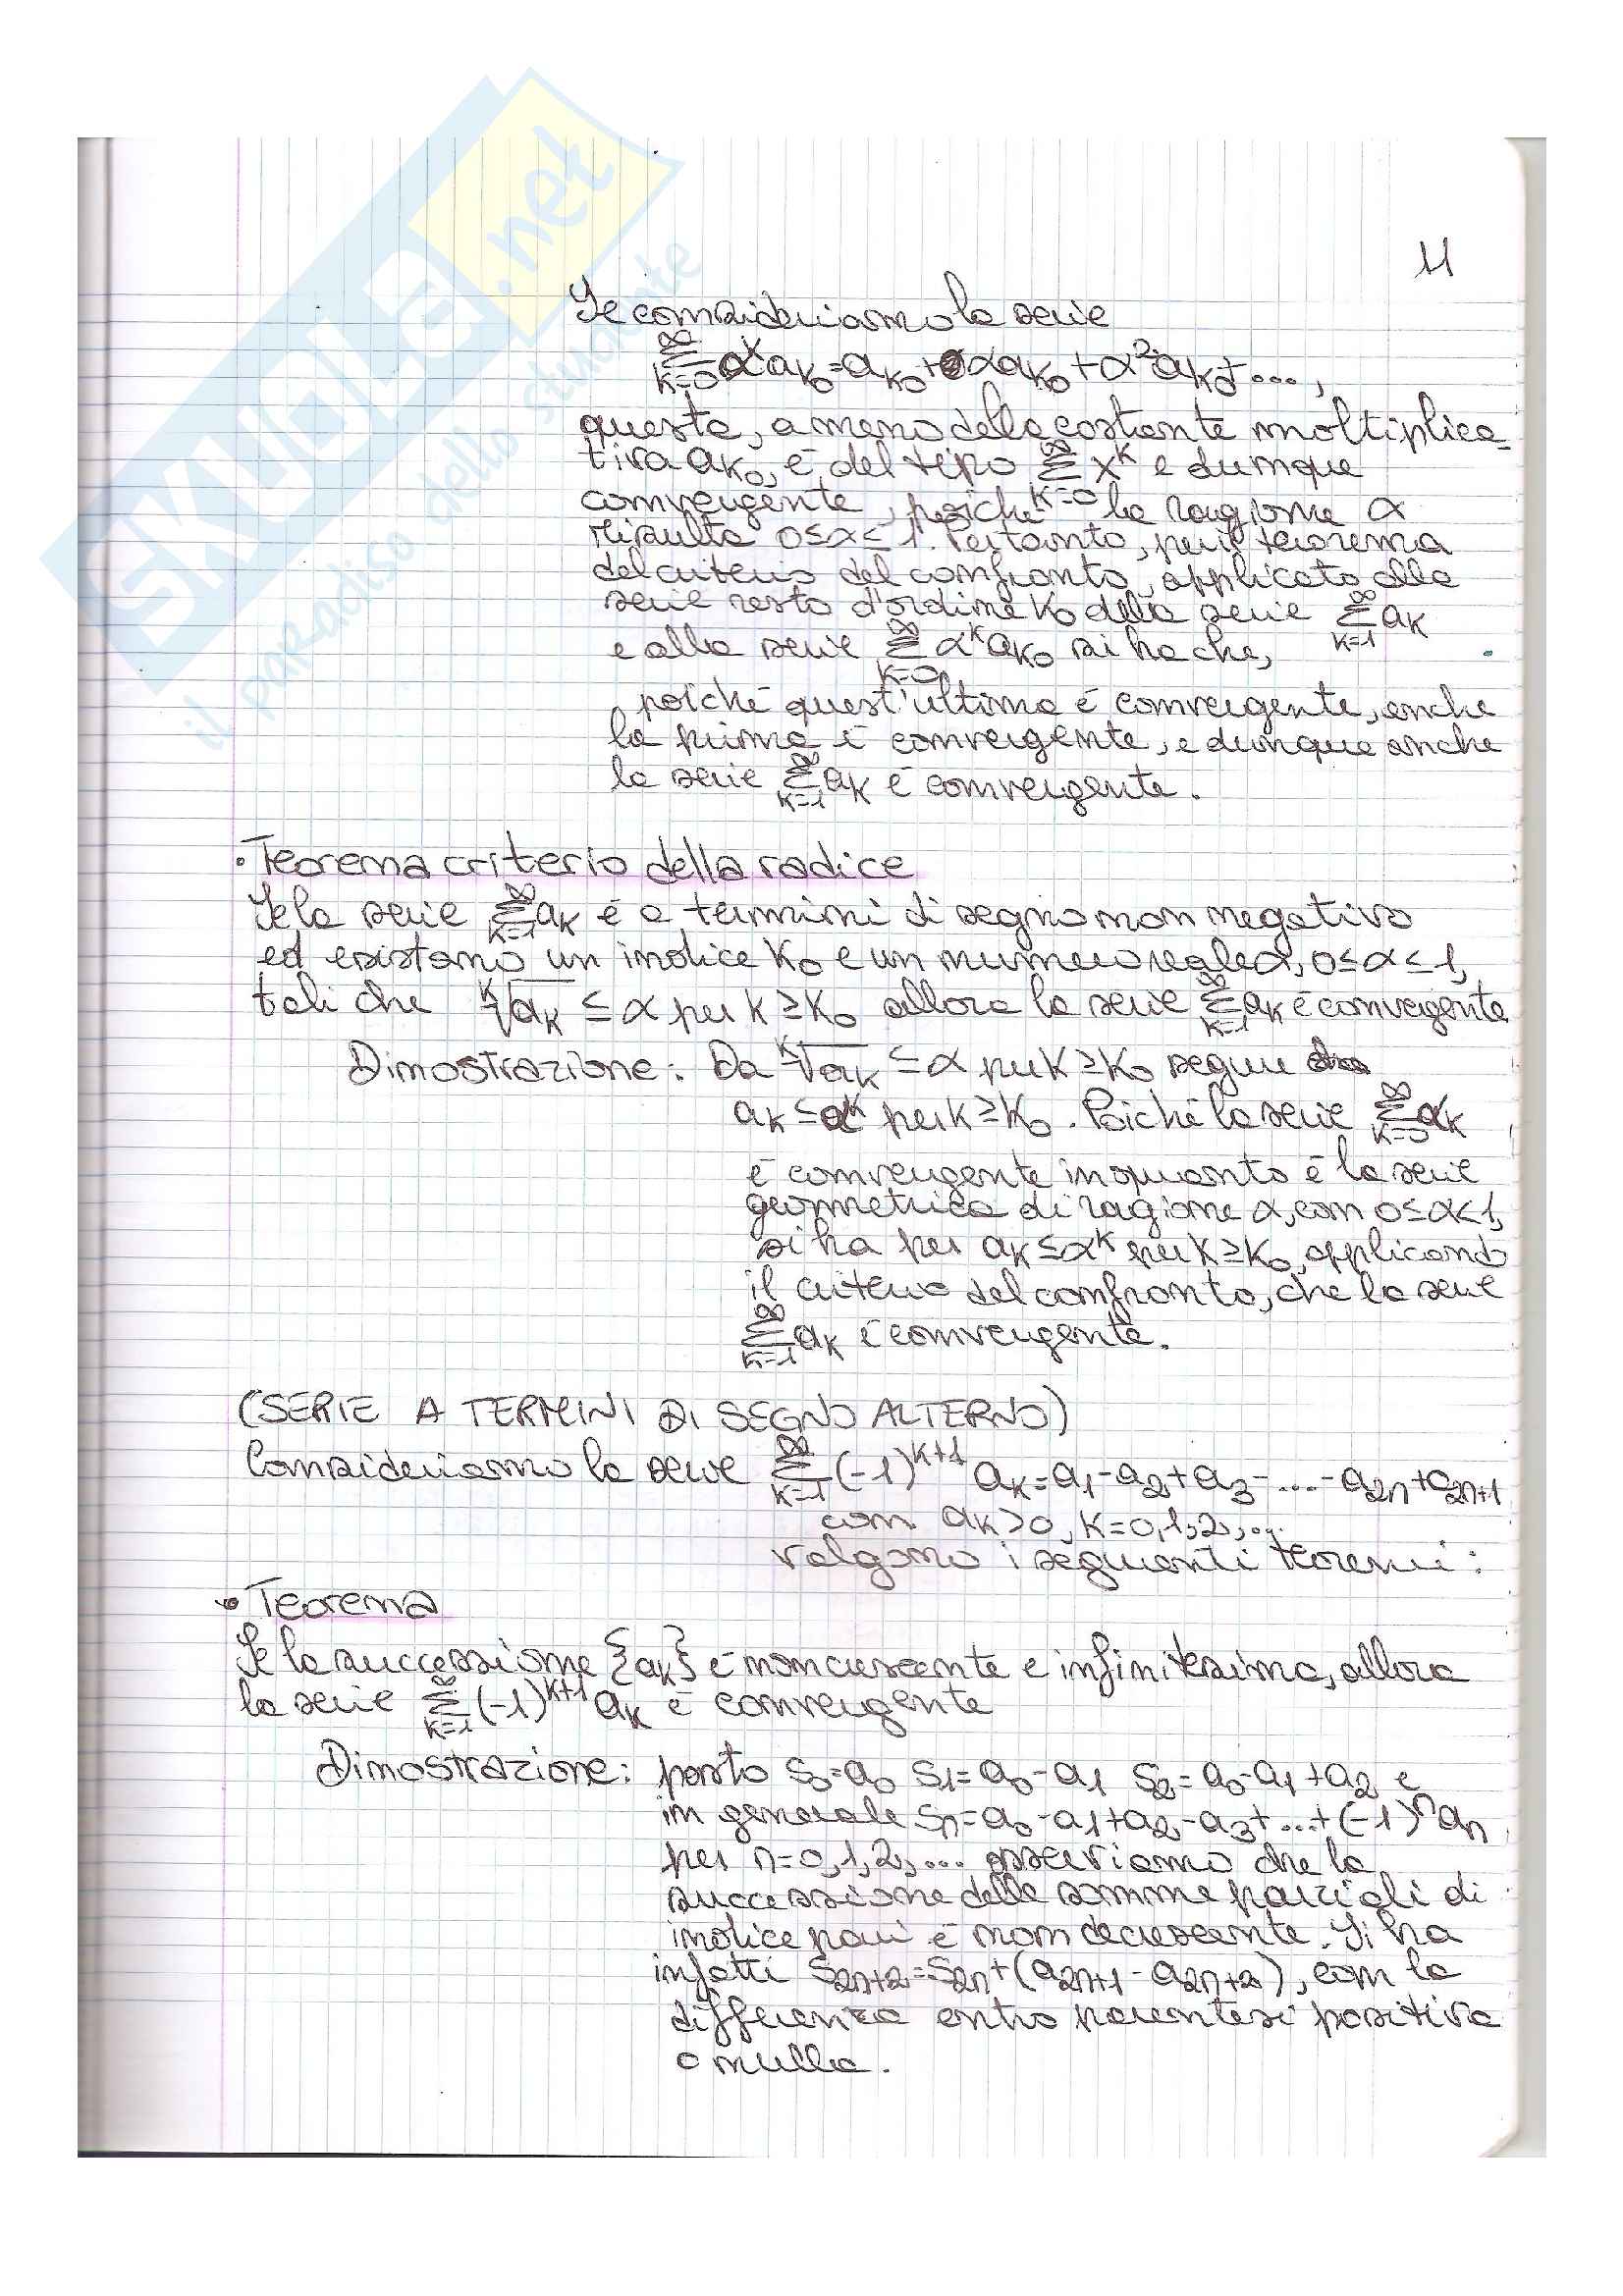 SKUOLA.net
il paradiso dello studente
11
Se consideriamo la serie
∑_{k=0}^{∞} α^k a_{k0} = a_{k0} + α a_{k0} + α^2 a_{k0} + ...,
questa, a meno della costante moltiplica-
tiva a_{k0}, è del tipo ∑_{k=0}^{∞} x^k e dunque
convergente, poiché la ragione α
risulta 0≤α≤1. Pertanto, per il teorema
del criterio del confronto, applicato alla
serie resto d'ordine k_0 della serie ∑_{k=1}^{∞} a_k
e alla serie ∑_{k=0}^{∞} α^k a_{k0} si ha che,
poiché quest'ultima è convergente, anche
la prima è convergente, e dunque anche
la serie ∑_{k=1}^{∞} a_k è convergente.
• Teorema criterio della radice
Se la serie ∑_{k=1}^{∞} a_k è a termini di segno non negativo
ed esistono un indice k_0 e un numero reale α, 0≤α≤1,
tali che ^k√a_k ≤ α per k≥k_0 allora la serie ∑_{k=1}^{∞} a_k è convergente
Dimostrazione: Da ^k√a_k ≤ α per k≥k_0 segue
a_k ≤ α^k per k≥k_0. Poiché la serie ∑_{k=0}^{∞} α_k
è convergente in quanto è la serie
geometrica di ragione α, con 0≤α<1,
si ha per a_k≤α^k per k≥k_0, applicando
il criterio del confronto, che la serie
∑_{k=1}^{∞} a_k è convergente.
(SERIE A TERMINI DI SEGNO ALTERNO)
Consideriamo la serie ∑_{k=1}^{∞} (-1)^{k+1} a_k = a_1 - a_2 + a_3 - ... - a_{2n} + a_{2n+1}
con a_k>0, k=0,1,2,...
valgono i seguenti teoremi:
• Teorema
Se la successione {a_k} è non crescente e infinitesima, allora
la serie ∑_{k=1}^{∞} (-1)^{k+1} a_k è convergente
Dimostrazione: posto s_0=a_0 s_1=a_0-a_1 s_2=a_0-a_1+a_2 e
in generale s_n=a_0-a_1+a_2-a_3+...+(-1)^n a_n
per n=0,1,2,... osserviamo che la
successione delle somme parziali di
indice pari è non decrescente. Si ha
infatti s_{2n+2}=s_{2n}+(a_{2n+1}-a_{2n+2}), con la
differenza entro parentesi positiva
o nulla.